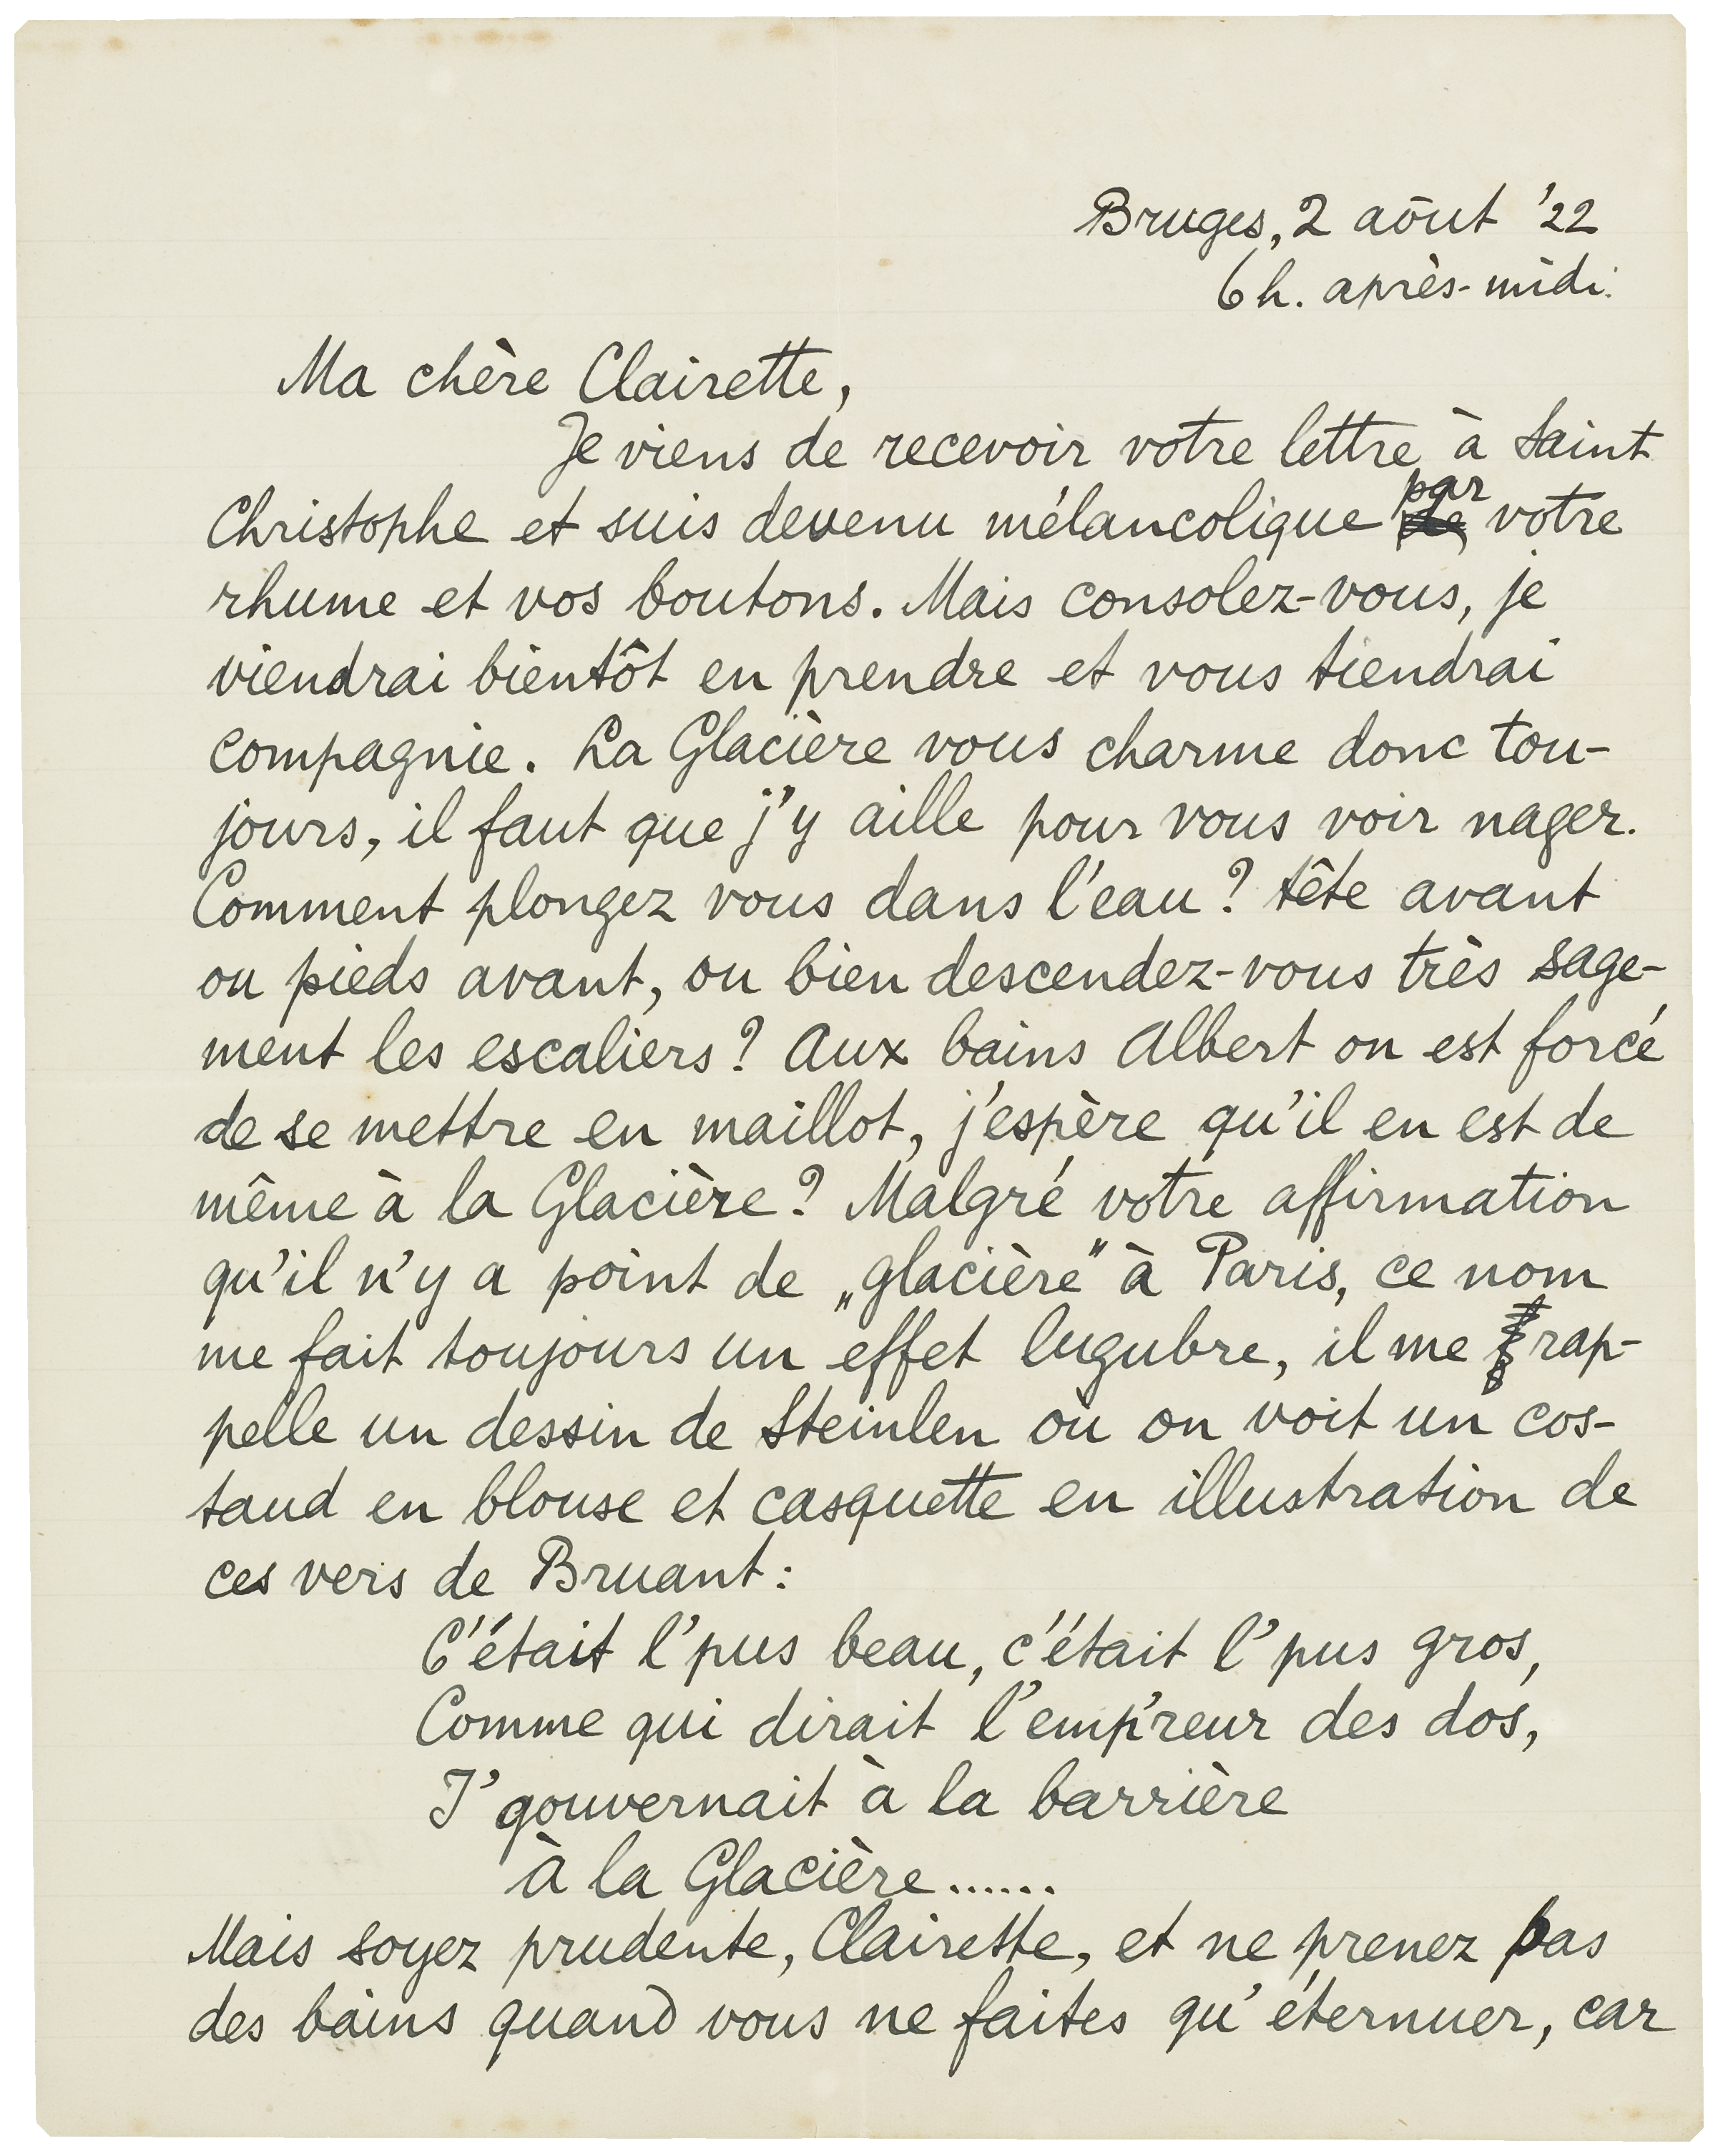 Bruges, 2 aôut '22
6 h. après-midi.
Ma chère Clairette,
Je viens de recevoir votre lettre à Saint
Christophe et suis devenu mélancolique par votre
rhume et vos boutons. Mais consolez-vous, je
viendrai bientôt en prendre et vous tiendrai
compagnie. La Glacière vous charme donc tou-
jours, il faut que j'y aille pour vous voir nager.
Comment plongez vous dans l'eau? tête avant
ou pieds avant, ou bien descendez-vous très sage-
ment les escaliers? Aux bains Albert on est forcé
de se mettre en maillot, j'espère qu'il en est de
même à la Glacière? Malgré votre affirmation
qu'il n'y a point de „glacière" à Paris, ce nom
me fait toujours un effet lugubre, il me rap-
pelle un dessin de Steinlen où on voit un cos-
taud en blouse et casquette en illustration de
ces vers de Bruant:
C'était l'pus beau, c'était l'pus gros,
Comme qui dirait l'emp'reur des dos,
I' gouvernait à la barrière
à la Glacière......
Mais soyez prudente, Clairette, et ne prenez pas
des bains quand vous ne faites qu'éternuer, car